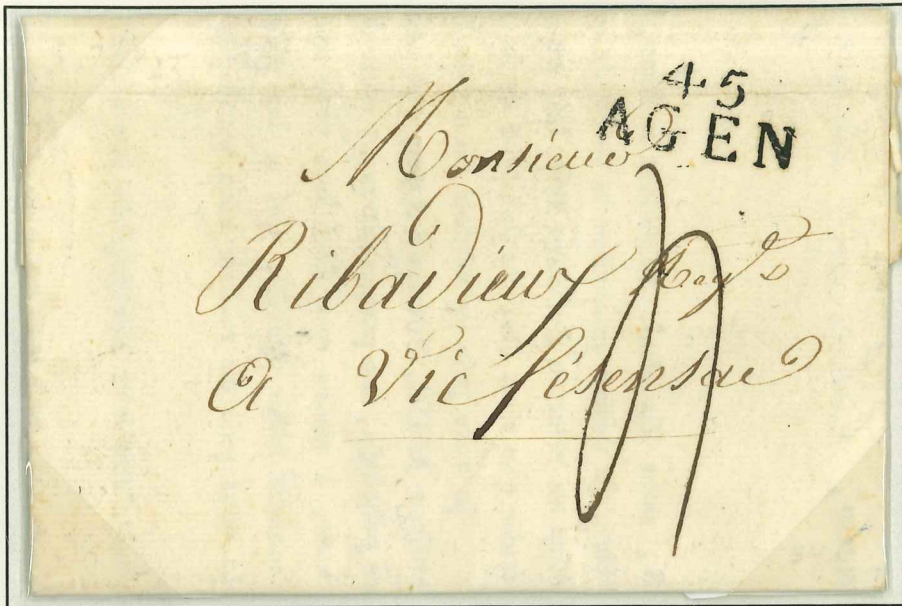 45
AGEN
Monsieur
Ribadieux Neg.ts
a Vic fésensac